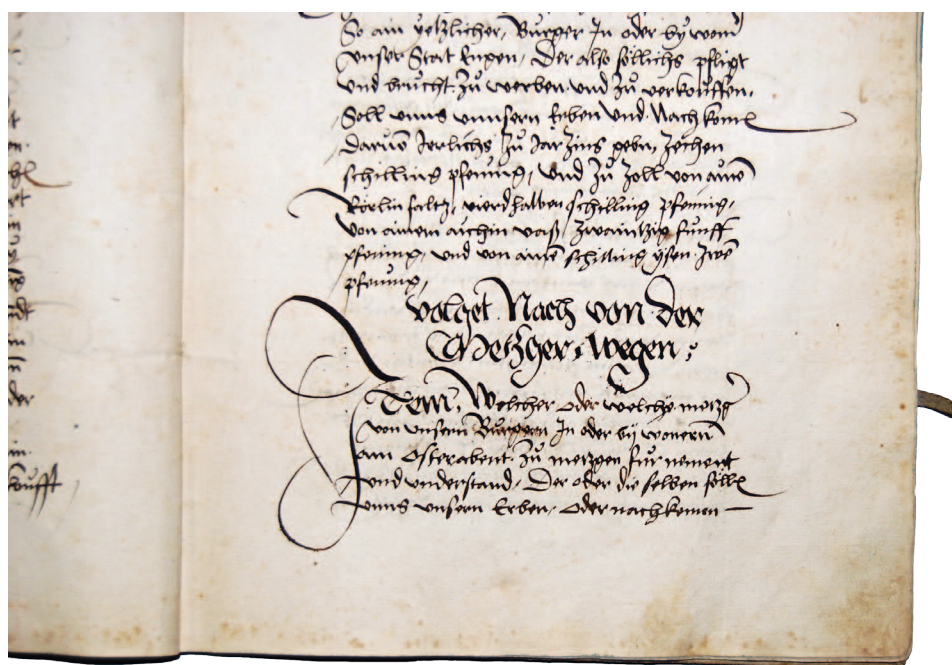 So ain yetzlicher, Burger In oder by woner
unser Statt Engen, Der also söllichs pfligt
und brucht zu werben und zu verkouffen,
Soll unns unnsern Erben und Nachkomen
Daruo Jerlichs zu Jar zins geben, zechen
schilling pfennig, und zu zoll von aine
Rörlin saltz, vierdhalben schilling pfennig,
von ainem aichin vaß, zwaintzig funff
pfening, und von aine schilling ysen zwe
pfening,
volget Nach von der
Metzger, wegen,
Item, Welcher oder welche metzger
von unsern Burgern In oder by wonern
am Osterabent zu metzgen fur nement
und understand, Der oder die selben söllen
unns unsern Erben, oder nachkomen
der
koufft